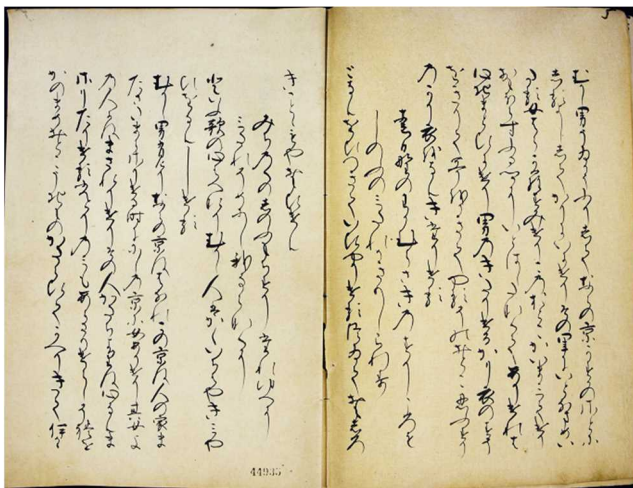 むかし男うゐかうふりしてならの京かすかの里に
しるよししてかりにいにけりその里にいとなまめい
たる女はらからすみけりこのおとこかいまみてけり
おもほえすふる里にいとはしたなくてありけれは
心地まとひにけり男のきたりけるかり衣のすそ
をきりて哥をかきてやるそのおとこしのふすり
のかり衣をなむきたりける
春日野のわかむらさきのすり衣
しのふのみたれかきりしられす
となむをいつきていひやりけるついておもしろ
きことゝもや思ひけん
みちのくの忍ふもちすりたれゆへに
みたれそめにし我ならなくに
といふ歌の心はへなりむかし人はかくいちはやきみや
ひをなんしける
むかし男有けりならの京ははなれこの京は人の家ま
たさたまらさりける時に西の京に女ありけり其女よ
の人にはまされりけりその人かたちよりは心なんま
さりたりけるひとりのみもあらさりけらし それを
かのまめ男うち物かたらひてかへりきていかゝ
44935